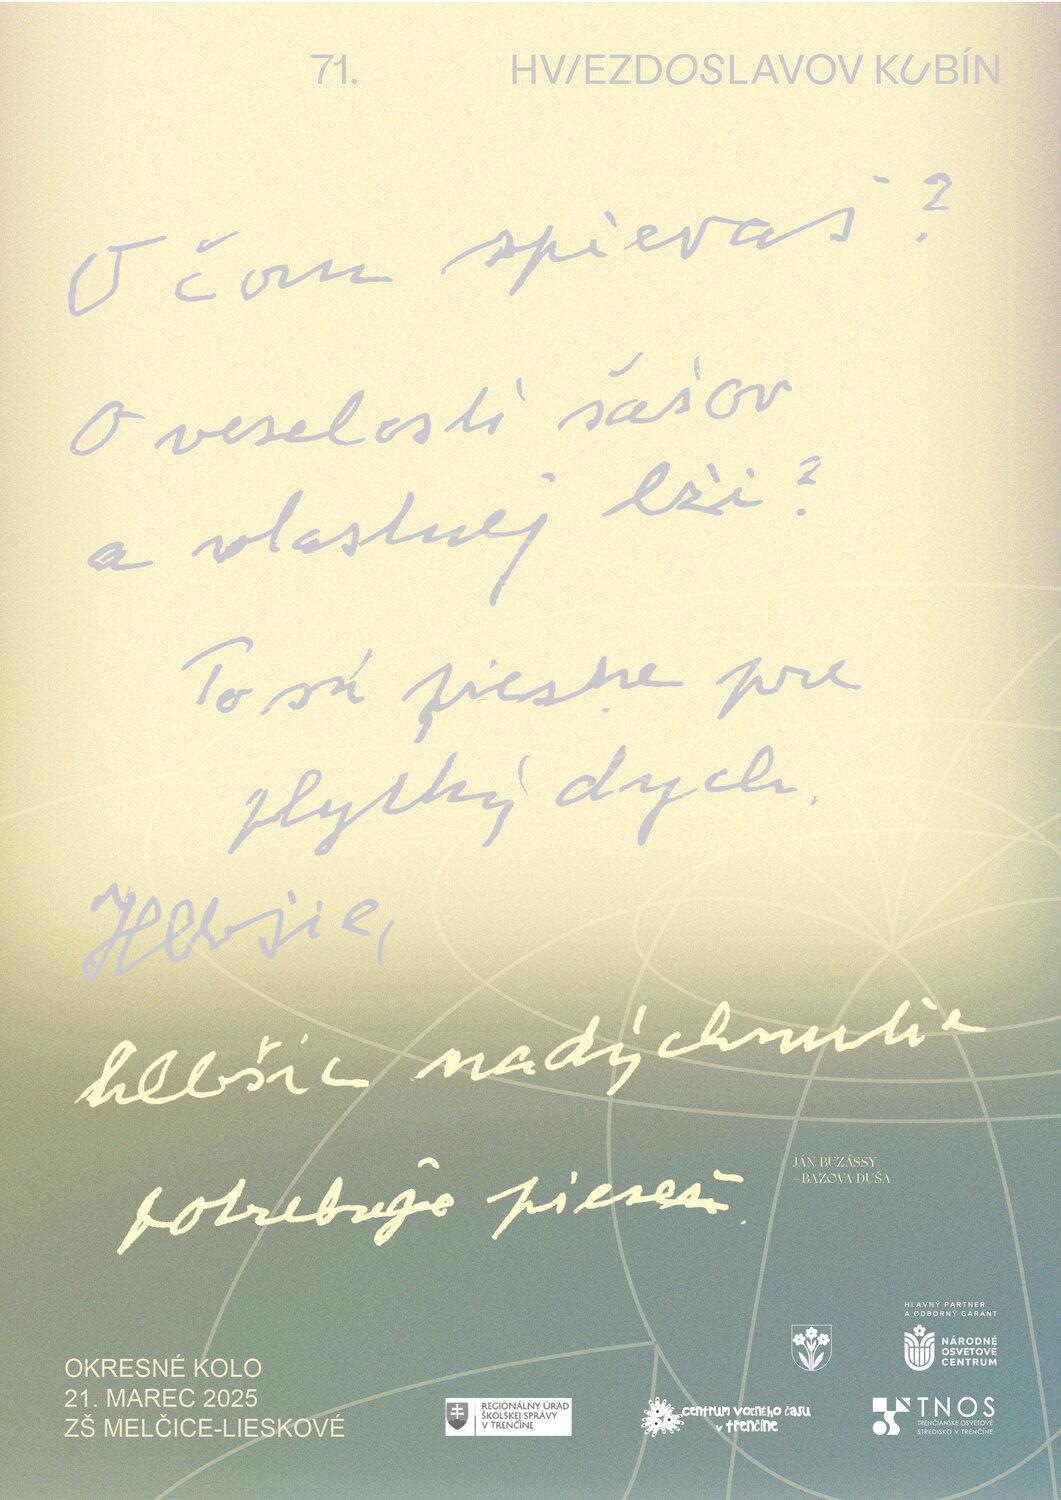 71. HVIEZDOSLAVOV KUBÍN
O čom spievaš?
O veselosti šašov
a vlastnej lži?
To sú piesne pre
plytký dych.
Hlbšie,
hlbšie nadýchnutie
potrebuje pieseň.
JÁN BUZÁSSY
– BAZOVA DUŠA
HLAVNÝ PARTNER
A ODBORNÝ GARANT
NÁRODNÉ
OSVETOVÉ
CENTRUM
OKRESNÉ KOLO
21. MAREC 2025
ZŠ MELČICE-LIESKOVÉ
REGIONÁLNY ÚRAD
ŠKOLSKEJ SPRÁVY
V TRENČÍNE
centrum voľného času
v trenčíne
TNOS
TRENČIANSKE OSVETOVÉ
STREDISKO V TRENČÍNE